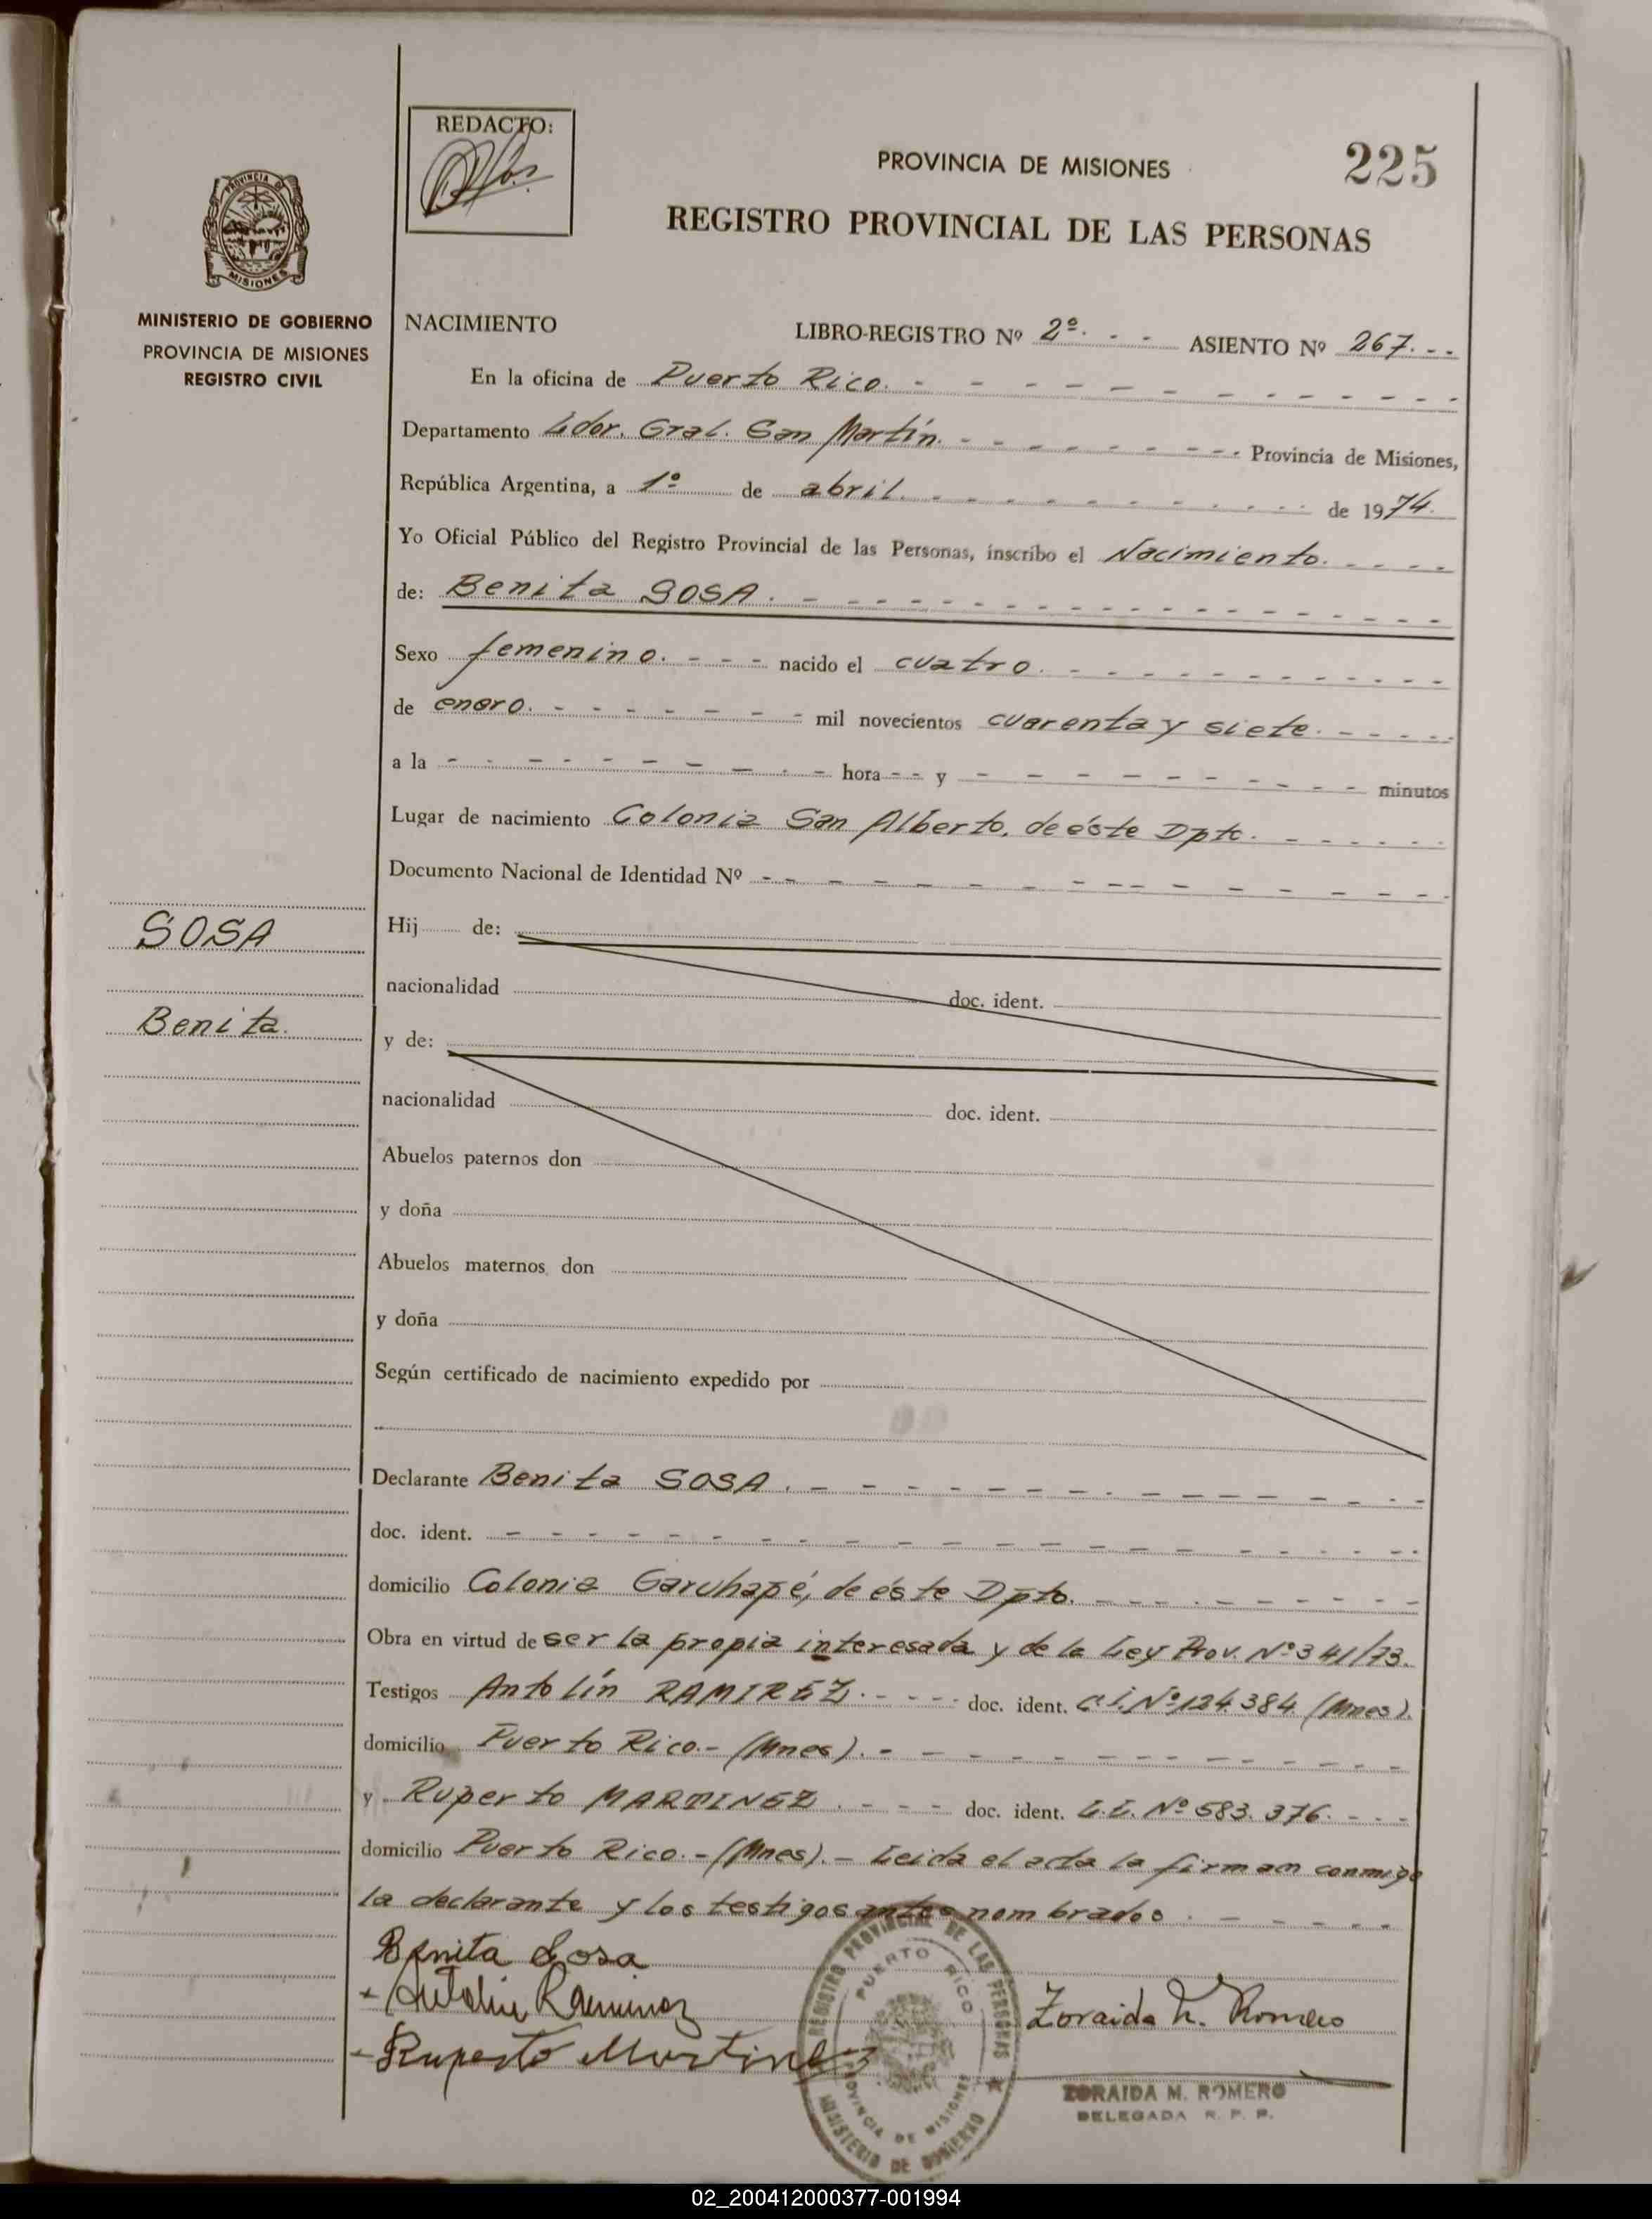 REDACTO:
PROVINCIA DE MISIONES
225
REGISTRO PROVINCIAL DE LAS PERSONAS
PROVINCIA DE
MISIONES
MINISTERIO DE GOBIERNO
PROVINCIA DE MISIONES
REGISTRO CIVIL
NACIMIENTO LIBRO-REGISTRO Nº 2º. - - ASIENTO Nº 267. - -
En la oficina de Puerto Rico. - - - - - - - - - - - -
Departamento Ldor. Gral. San Martín. - - - - - - - - Provincia de Misiones,
República Argentina, a 1º de abril. - - - - - - - - - de 1974.
Yo Oficial Público del Registro Provincial de las Personas, inscribo el Nacimiento. - - - -
de: Benita SOSA. - - - - - - - - - - - - - - - -
Sexo femenino. - - - nacido el cuatro. - - - - - - - - - -
de enero. - - - - - - - mil novecientos cuarenta y siete. - - - - -
a la - - - - - - - - - hora - - y - - - - - - - - - - minutos
Lugar de nacimiento Colonia San Alberto, de éste Dpto. - - - - -
Documento Nacional de Identidad Nº - - - - - - - - - - - - - - -
SOSA
Benita.
Hij de:
nacionalidad doc. ident.
y de:
nacionalidad doc. ident.
Abuelos paternos don
y doña
Abuelos maternos don
y doña
Según certificado de nacimiento expedido por
Declarante Benita SOSA. - - - - - - - - - - - - - - -
doc. ident. - - - - - - - - - - - - - - - - - - - -
domicilio Colonia Garuhapé, de éste Dpto. - - - - - - - - -
Obra en virtud de ser la propia interesada y de la Ley Prov. Nº 341/73.
Testigos Antolín RAMIREZ. - - - - doc. ident. C.I. Nº 124.384 (Mnes).
domicilio Puerto Rico.- (Mnes). - - - - - - - - - - - - -
y Ruperto MARTINEZ. - - - doc. ident. L.E. Nº 583.376. - - -
domicilio Puerto Rico.- (Mnes).- Leida el acta la firman conmigo
la declarante y los testigos antes nombrados. - - - - -
Benita Sosa
Antolin Ramirez
Ruperto Martinez
REGISTRO PROVINCIAL DE LAS PERSONAS
PUERTO RICO
PROVINCIA DE MISIONES
MINISTERIO DE GOBIERNO
Zoraida M. Romero
ZORAIDA M. ROMERO
DELEGADA R. P. P.
02_200412000377-001994